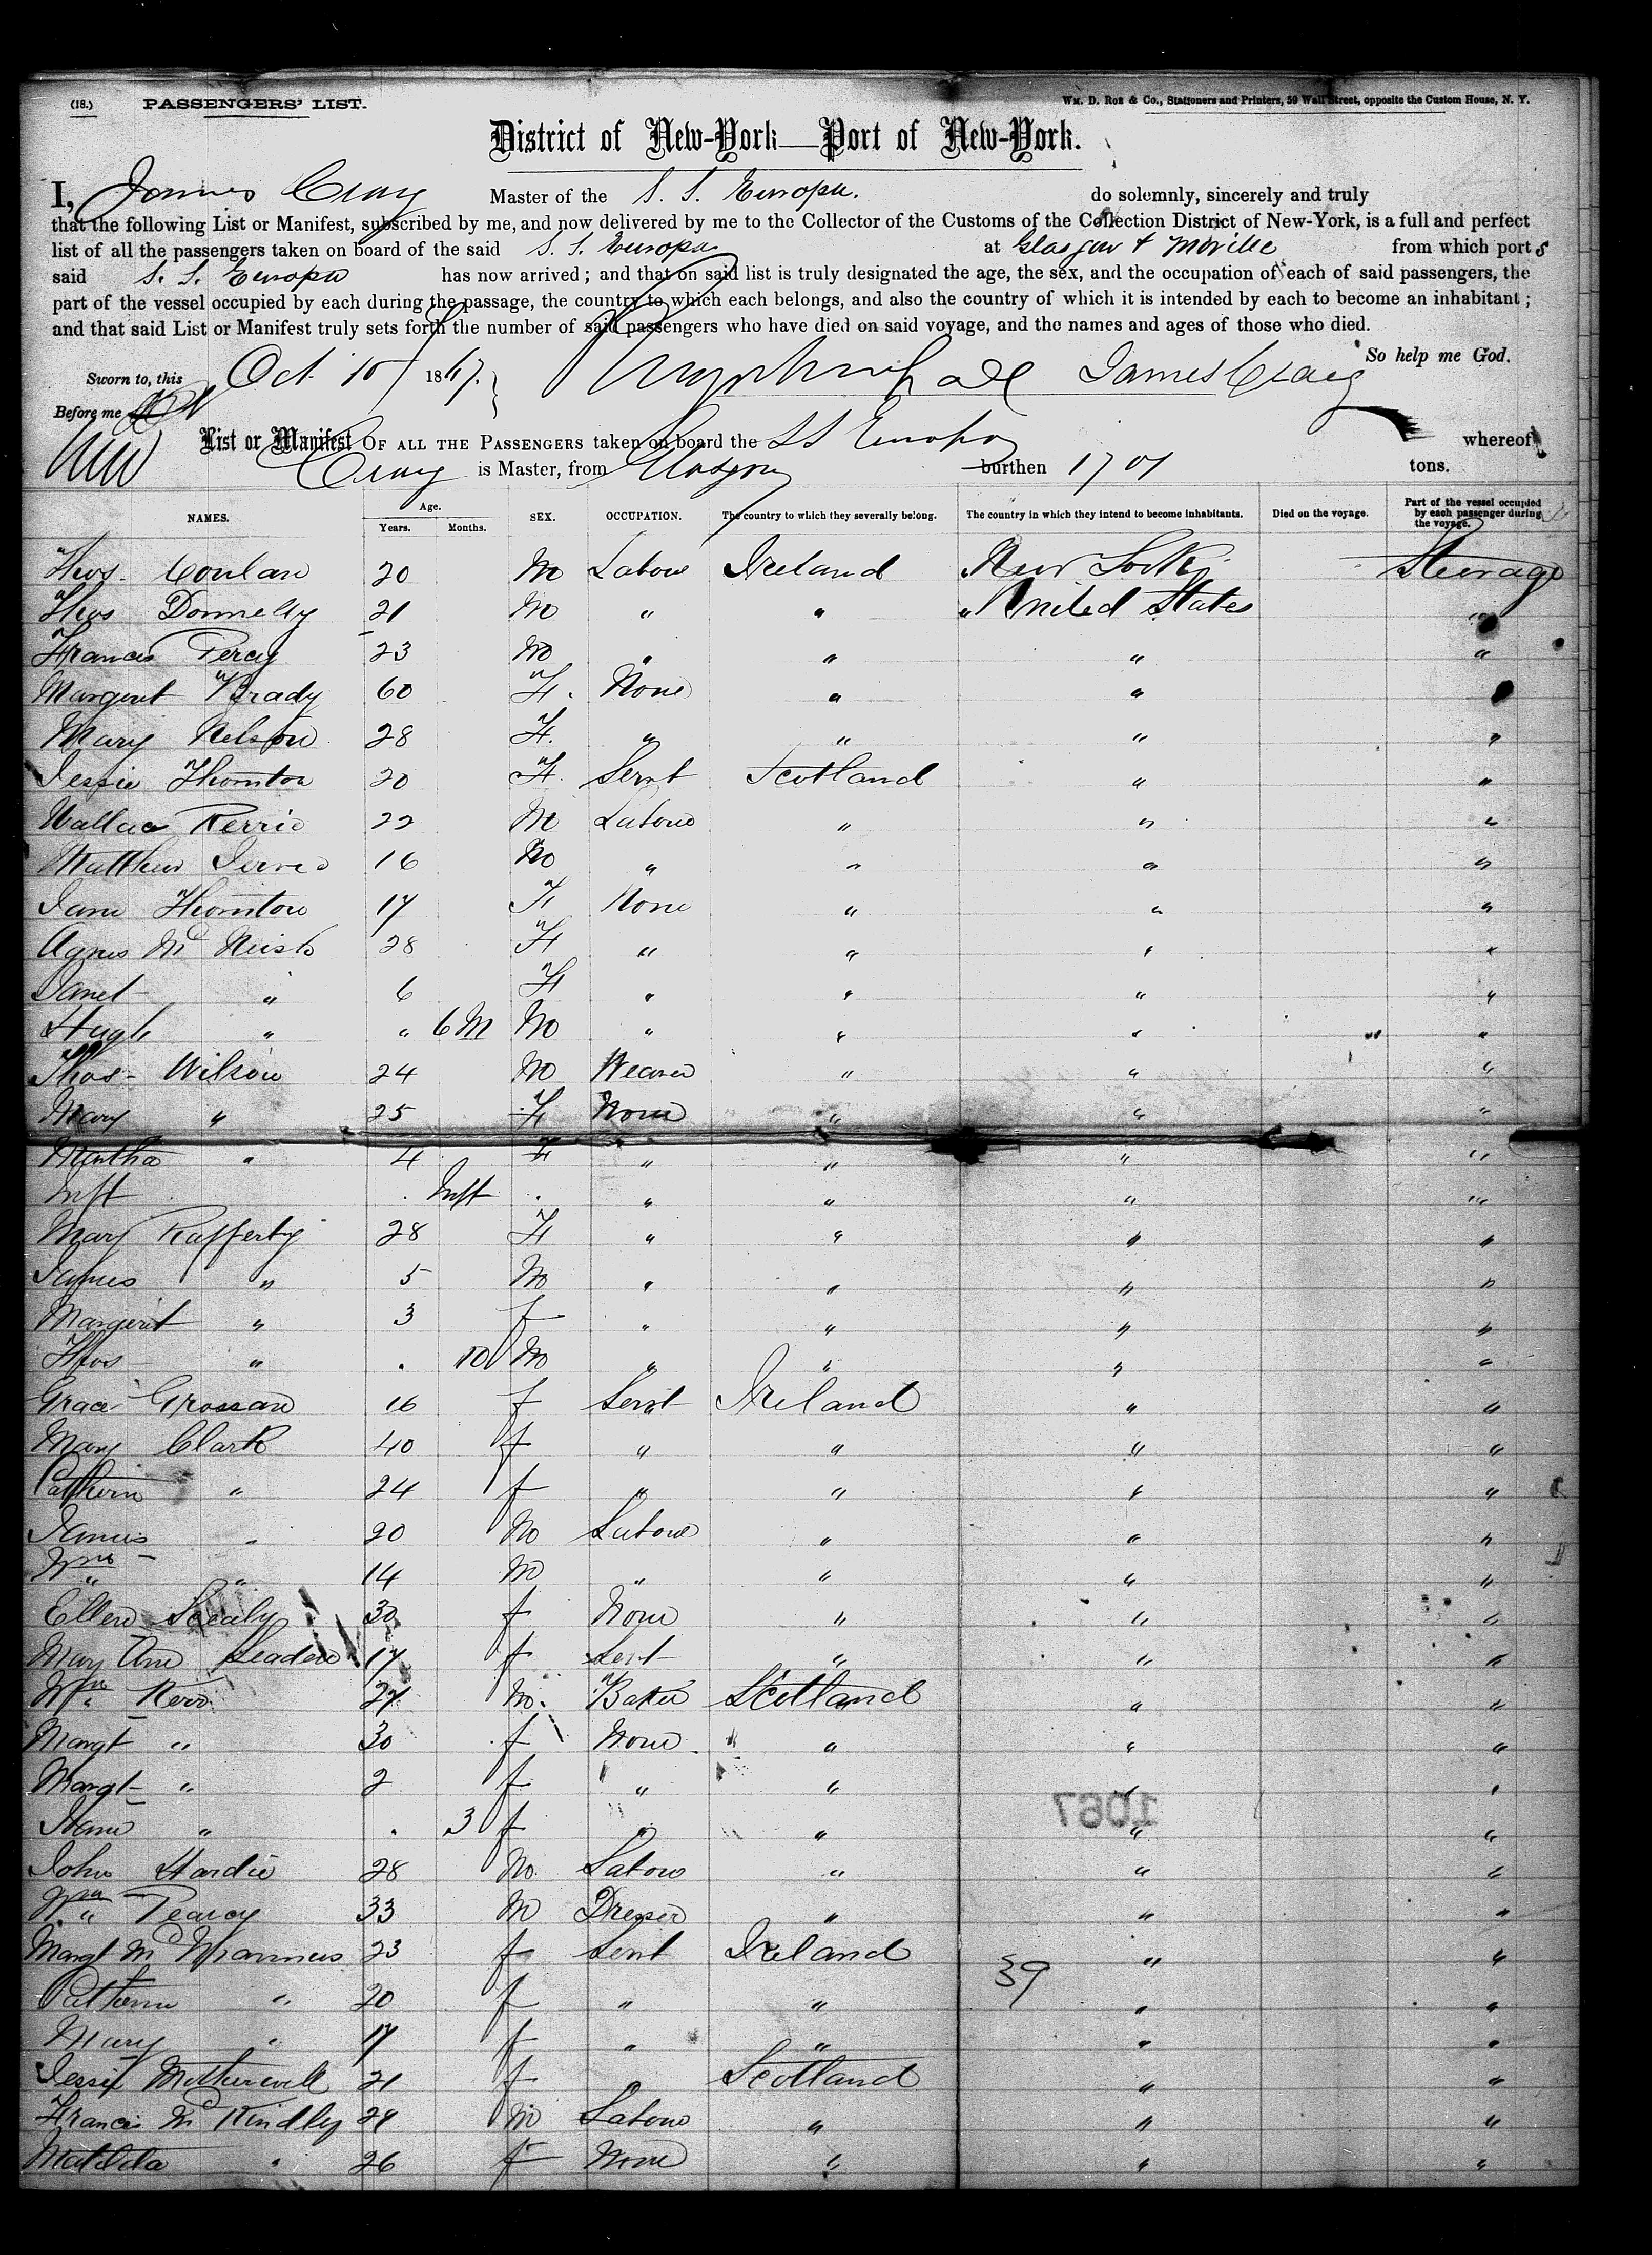 (18.) PASSENGERS' LIST. WM. D. ROE & CO., Stationers and Printers, 59 Wall Street, opposite the Custom House, N. Y.
District of New-York—Port of New-York.
I, James Craig Master of the S. S. Europa. do solemnly, sincerely and truly
that the following List or Manifest, subscribed by me, and now delivered by me to the Collector of the Customs of the Collection District of New-York, is a full and perfect
list of all the passengers taken on board of the said S. S. Europa at Glasgow & Moville from which port s
said S. S. Europa has now arrived; and that on said list is truly designated the age, the sex, and the occupation of each of said passengers, the
part of the vessel occupied by each during the passage, the country to which each belongs, and also the country of which it is intended by each to become an inhabitant;
and that said List or Manifest truly sets forth the number of said passengers who have died on said voyage, and the names and ages of those who died.
So help me God.
Sworn to, this Oct 15 1867. James Craig
Before me
List or Manifest OF ALL THE PASSENGERS taken on board the SS Europa whereof
Craig is Master, from Glasgow burthen 1701 tons.
NAMES. Age. Years. Months. SEX. OCCUPATION. The country to which they severally belong. The country in which they intend to become inhabitants. Died on the voyage. Part of the vessel occupied by each passenger during the voyage.
Thos. Conlan 20 M Labour Ireland New York Steerage
Thos Donnelly 21 M " " " United States "
Francis Percy 23 M " " " "
Margeret Brady 60 F. None " " "
Mary Nelson 28 F. " " " "
Jessie Thornton 20 F. Servt Scotland " "
Wallace Kerrie 22 M Labour " " "
Matthew 16 M " " " "
Jane Thornton 17 F None " " "
Agnes Mc Neish 28 F " " " "
Janet " 6 F " " " "
Hugh " " 6 M M " " " "
Thos- Wilson 24 M Weaver " " "
Mary " 25 F None " " "
Martha " 4 F " " " "
Inft . Inft . " " " "
Mary Rafferty 28 F " " " "
James " 5 M " " " "
Margeret " 3 f " " " "
Thos " . 10 M " " " "
Grace Crossan 16 f Servt Ireland " "
Mary Clark 40 f " " " "
Cathern " 24 f " " " "
James " 20 M Labour " " "
Wm " 14 M " " " "
Ellen 30 f None " " "
Mary Ann Leadon 17 f Servt " " "
Wm Kerr 27 M. Baker Scotland " "
Margt " 30 f None " " "
Margt " 2 f " " " "
" . 3 f " " " "
John Hardie 28 M. Labour " " "
Wm Pearcy 33 M Dresser " " "
Margt Mc Manmus 23 f Servt Ireland " "
39
Cathern " 20 f " " " "
Mary " 17 f " " " "
Jessie Motherwell 21 f " Scotland " "
Francis Mc Kindley 29 M Labour " " "
Matilda " 26 f None " " "
1067